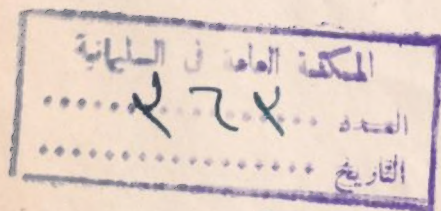 المكتبة العامة في السليمانية
العدد ٢٦٢
التاريخ